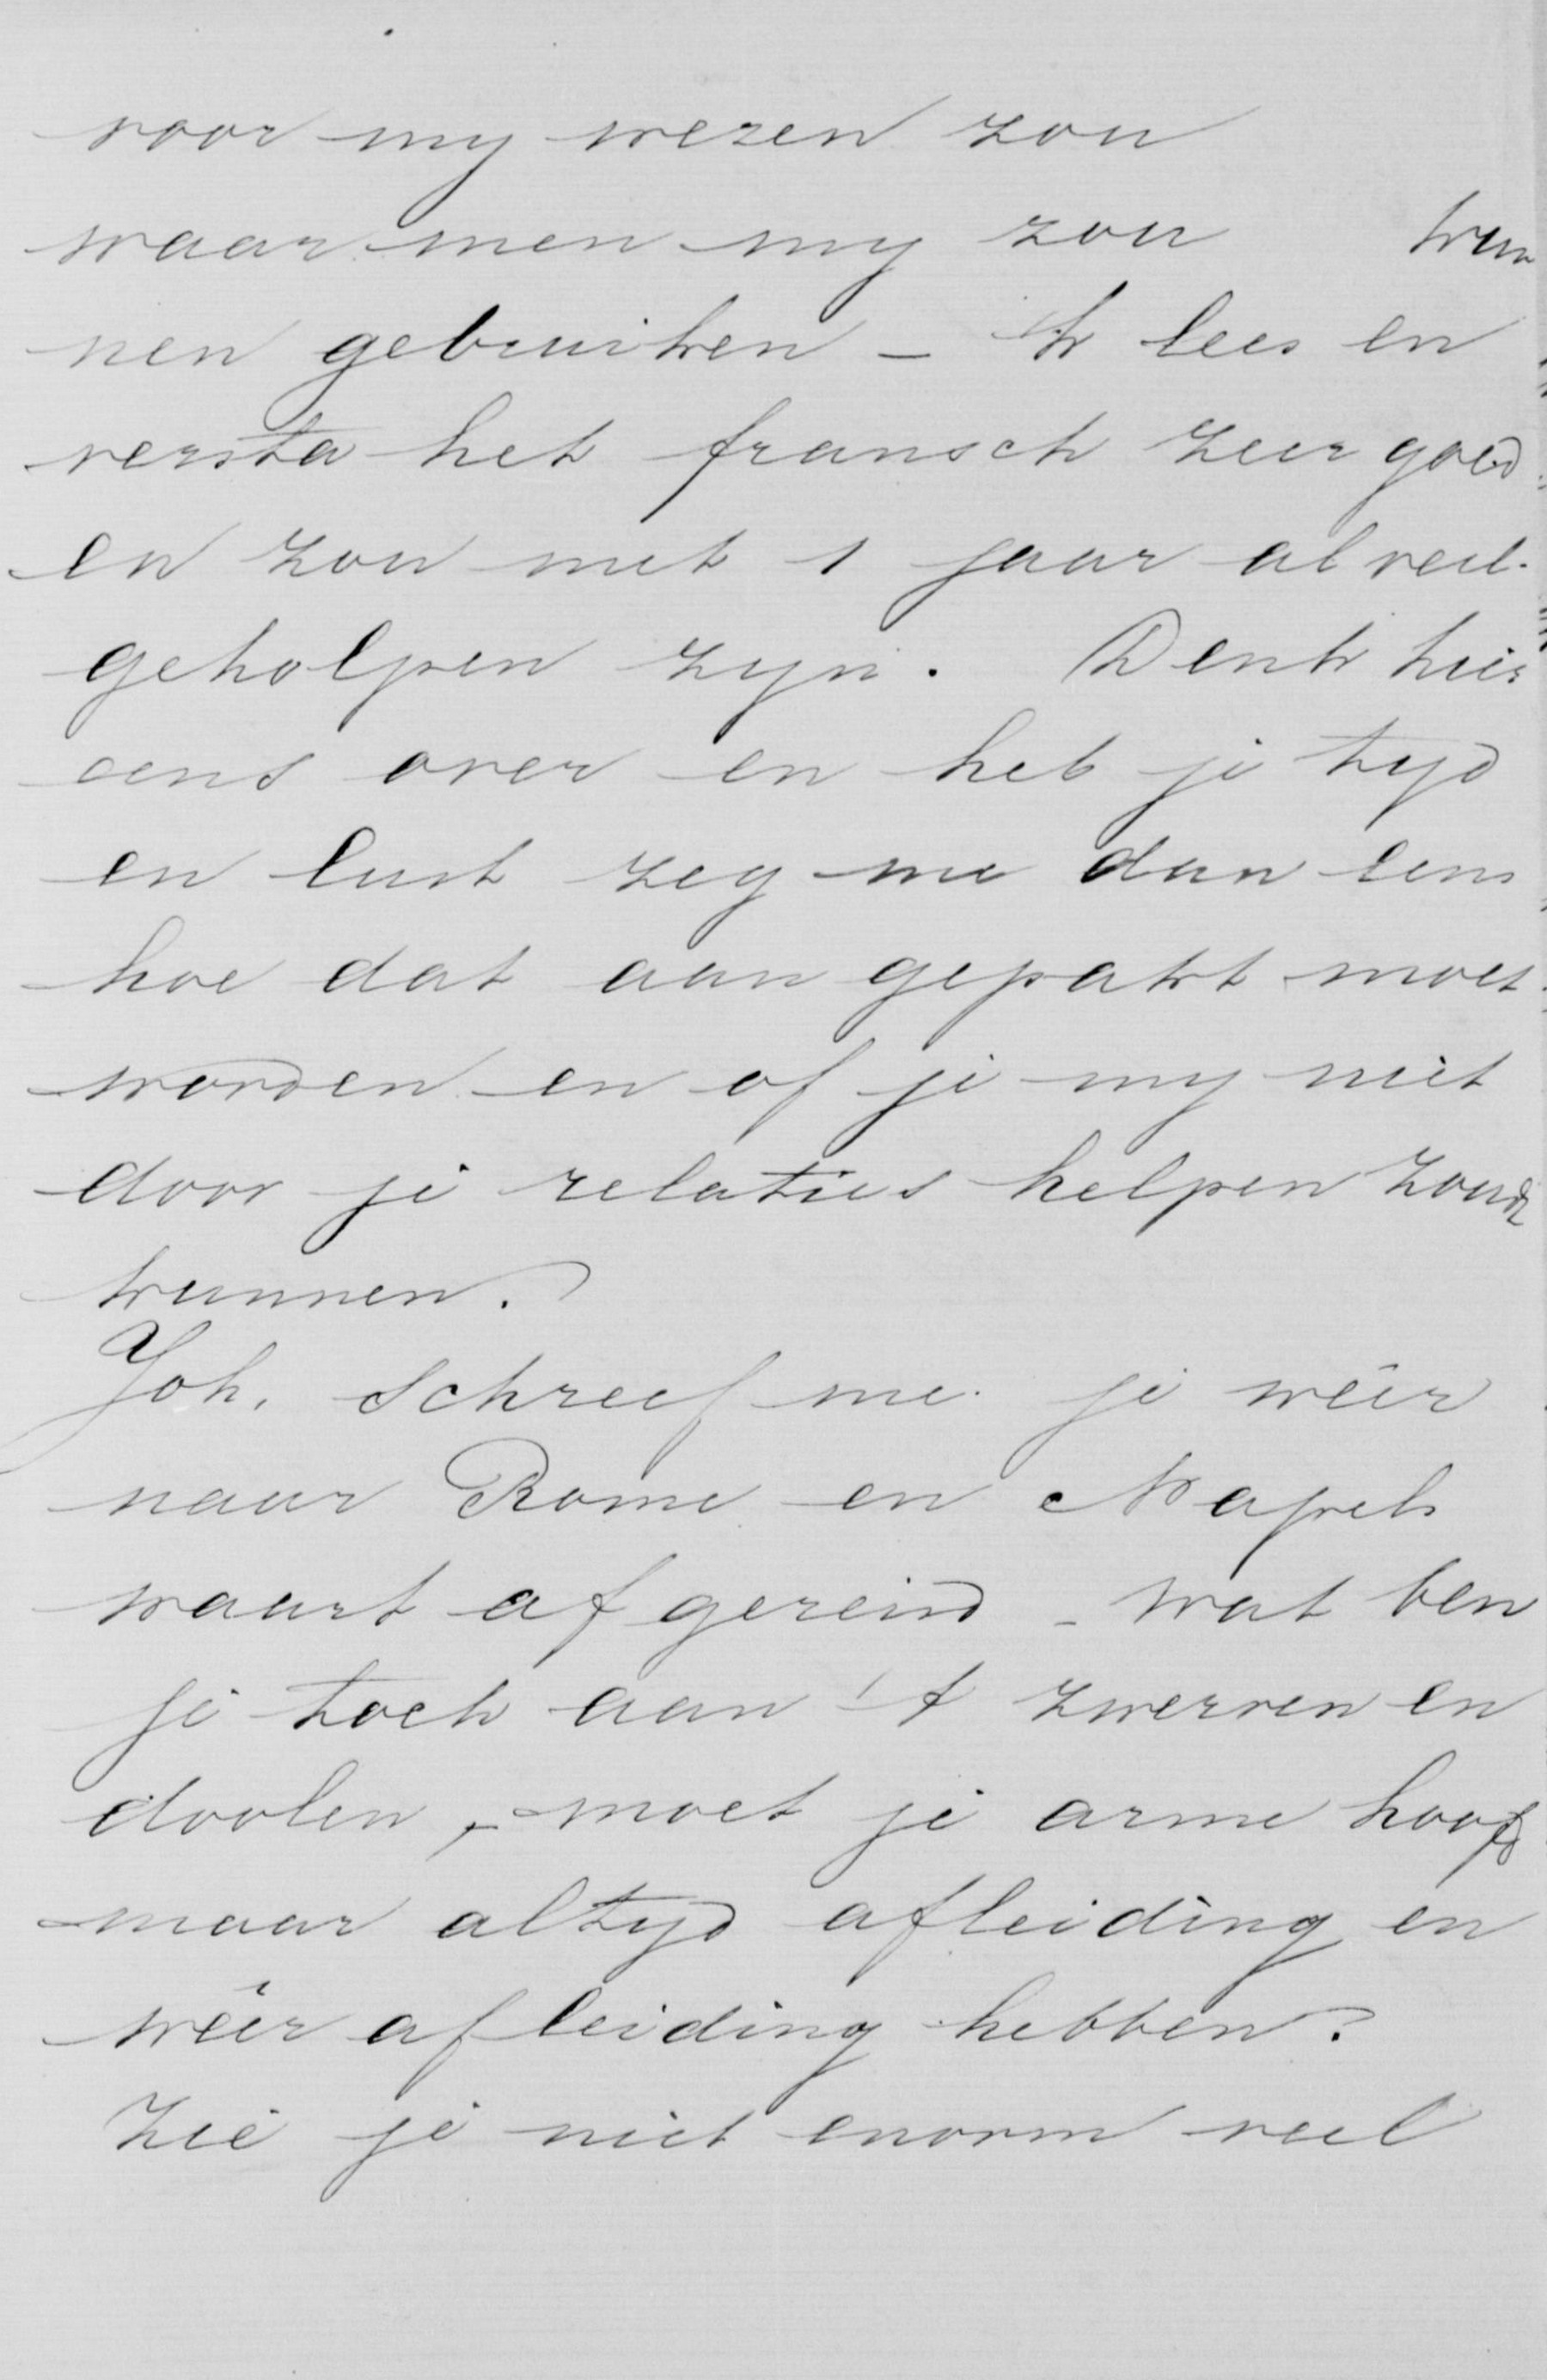 voor my wezen zou
waar men my zou kun
nen gebruiken – Ik lees en
versta het fransch zeer goed
en zou met 1 jaar al veel
geholpen zyn. Denk hier
eens over en heb je tyd
en lust zeg me dan eens
hoe dat aangepakt moet
worden en of je my niet
door je relaties helpen zoudt
kunnen.
Joh. schreef me je wéér
naar Rome en Napels
waart afgereisd – wat ben
je toch aan 't zwerven en
doolen, moet je arme hoofd
maar altyd afleiding en
wéér afleiding hebben?
Zie je niet enorm veel